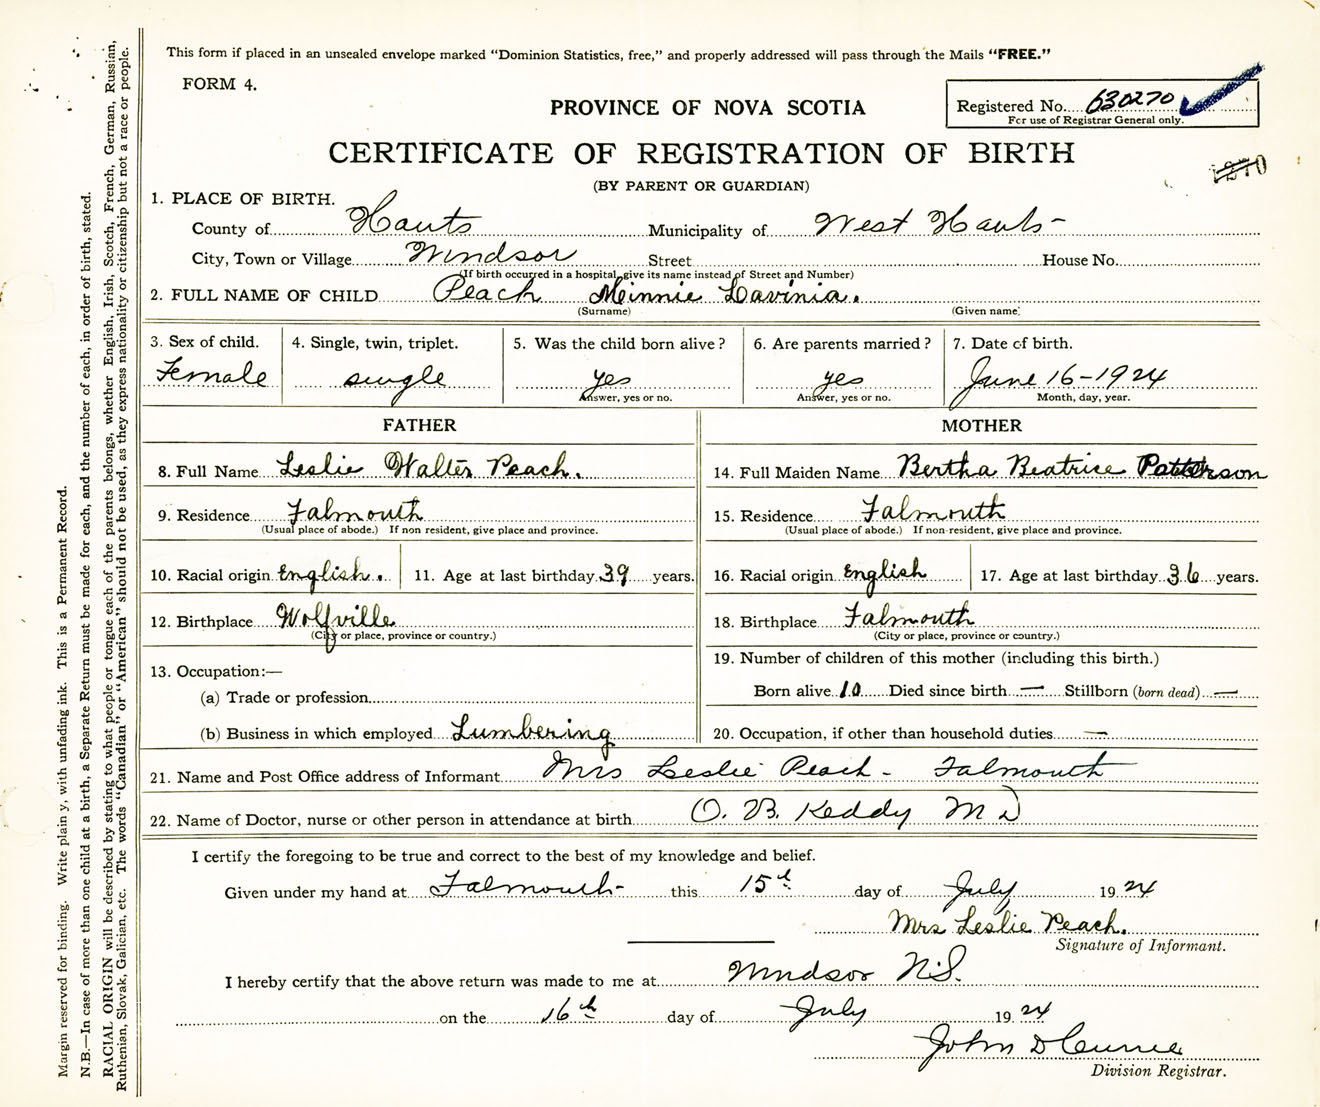 This form if placed in an unsealed envelope marked "Dominion Statistics, free," and properly addressed will pass through the Mails "FREE."
FORM 4.
PROVINCE OF NOVA SCOTIA
Registered No. 630270
For use of Registrar General only.
CERTIFICATE OF REGISTRATION OF BIRTH
1270
(BY PARENT OR GUARDIAN)
1. PLACE OF BIRTH.
County of Hants Municipality of West Hants -
City, Town or Village Windsor Street House No.
(If birth occurred in a hospital, give its name instead of Street and Number)
2. FULL NAME OF CHILD Peach Minnie Lavinia.
(Surname) (Given name)
3. Sex of child. 4. Single, twin, triplet. 5. Was the child born alive? 6. Are parents married? 7. Date of birth.
Female single yes yes June 16-1924
Answer, yes or no. Answer, yes or no. Month, day, year.
FATHER MOTHER
8. Full Name Leslie Walter Peach. 14. Full Maiden Name Bertha Beatrice Patterson
9. Residence Falmouth 15. Residence Falmouth
(Usual place of abode.) If non resident, give place and province. (Usual place of abode.) If non-resident, give place and province.
10. Racial origin English. 11. Age at last birthday 39 years. 16. Racial origin English 17. Age at last birthday 36 years.
12. Birthplace Wolfville 18. Birthplace Falmouth
(City or place, province or country.) (City or place, province or country.)
13. Occupation:— 19. Number of children of this mother (including this birth.)
(a) Trade or profession Born alive 10 Died since birth — Stillborn (born dead) —
(b) Business in which employed Lumbering 20. Occupation, if other than household duties —
21. Name and Post Office address of Informant Mrs Leslie Peach - Falmouth
22. Name of Doctor, nurse or other person in attendance at birth O. B. Keddy M D
I certify the foregoing to be true and correct to the best of my knowledge and belief.
Given under my hand at Falmouth - this 15th day of July 1924
Mrs Leslie Peach.
Signature of Informant.
I hereby certify that the above return was made to me at Windsor N.S.
on the 16th day of July 1924
John D Currie
Division Registrar.
Margin reserved for binding. Write plainly, with unfading ink. This is a Permanent Record.
N.B.—In case of more than one child at a birth, a Separate Return must be made for each, and the number of each, in order of birth, stated.
RACIAL ORIGIN will be described by stating to what people or tongue each of the parents belongs, whether English, Irish, Scotch, French, German, Russian,
Ruthenian, Slovak, Galician, etc. The words "Canadian" or "American" should not be used, as they express nationality or citizenship but not a race or people.